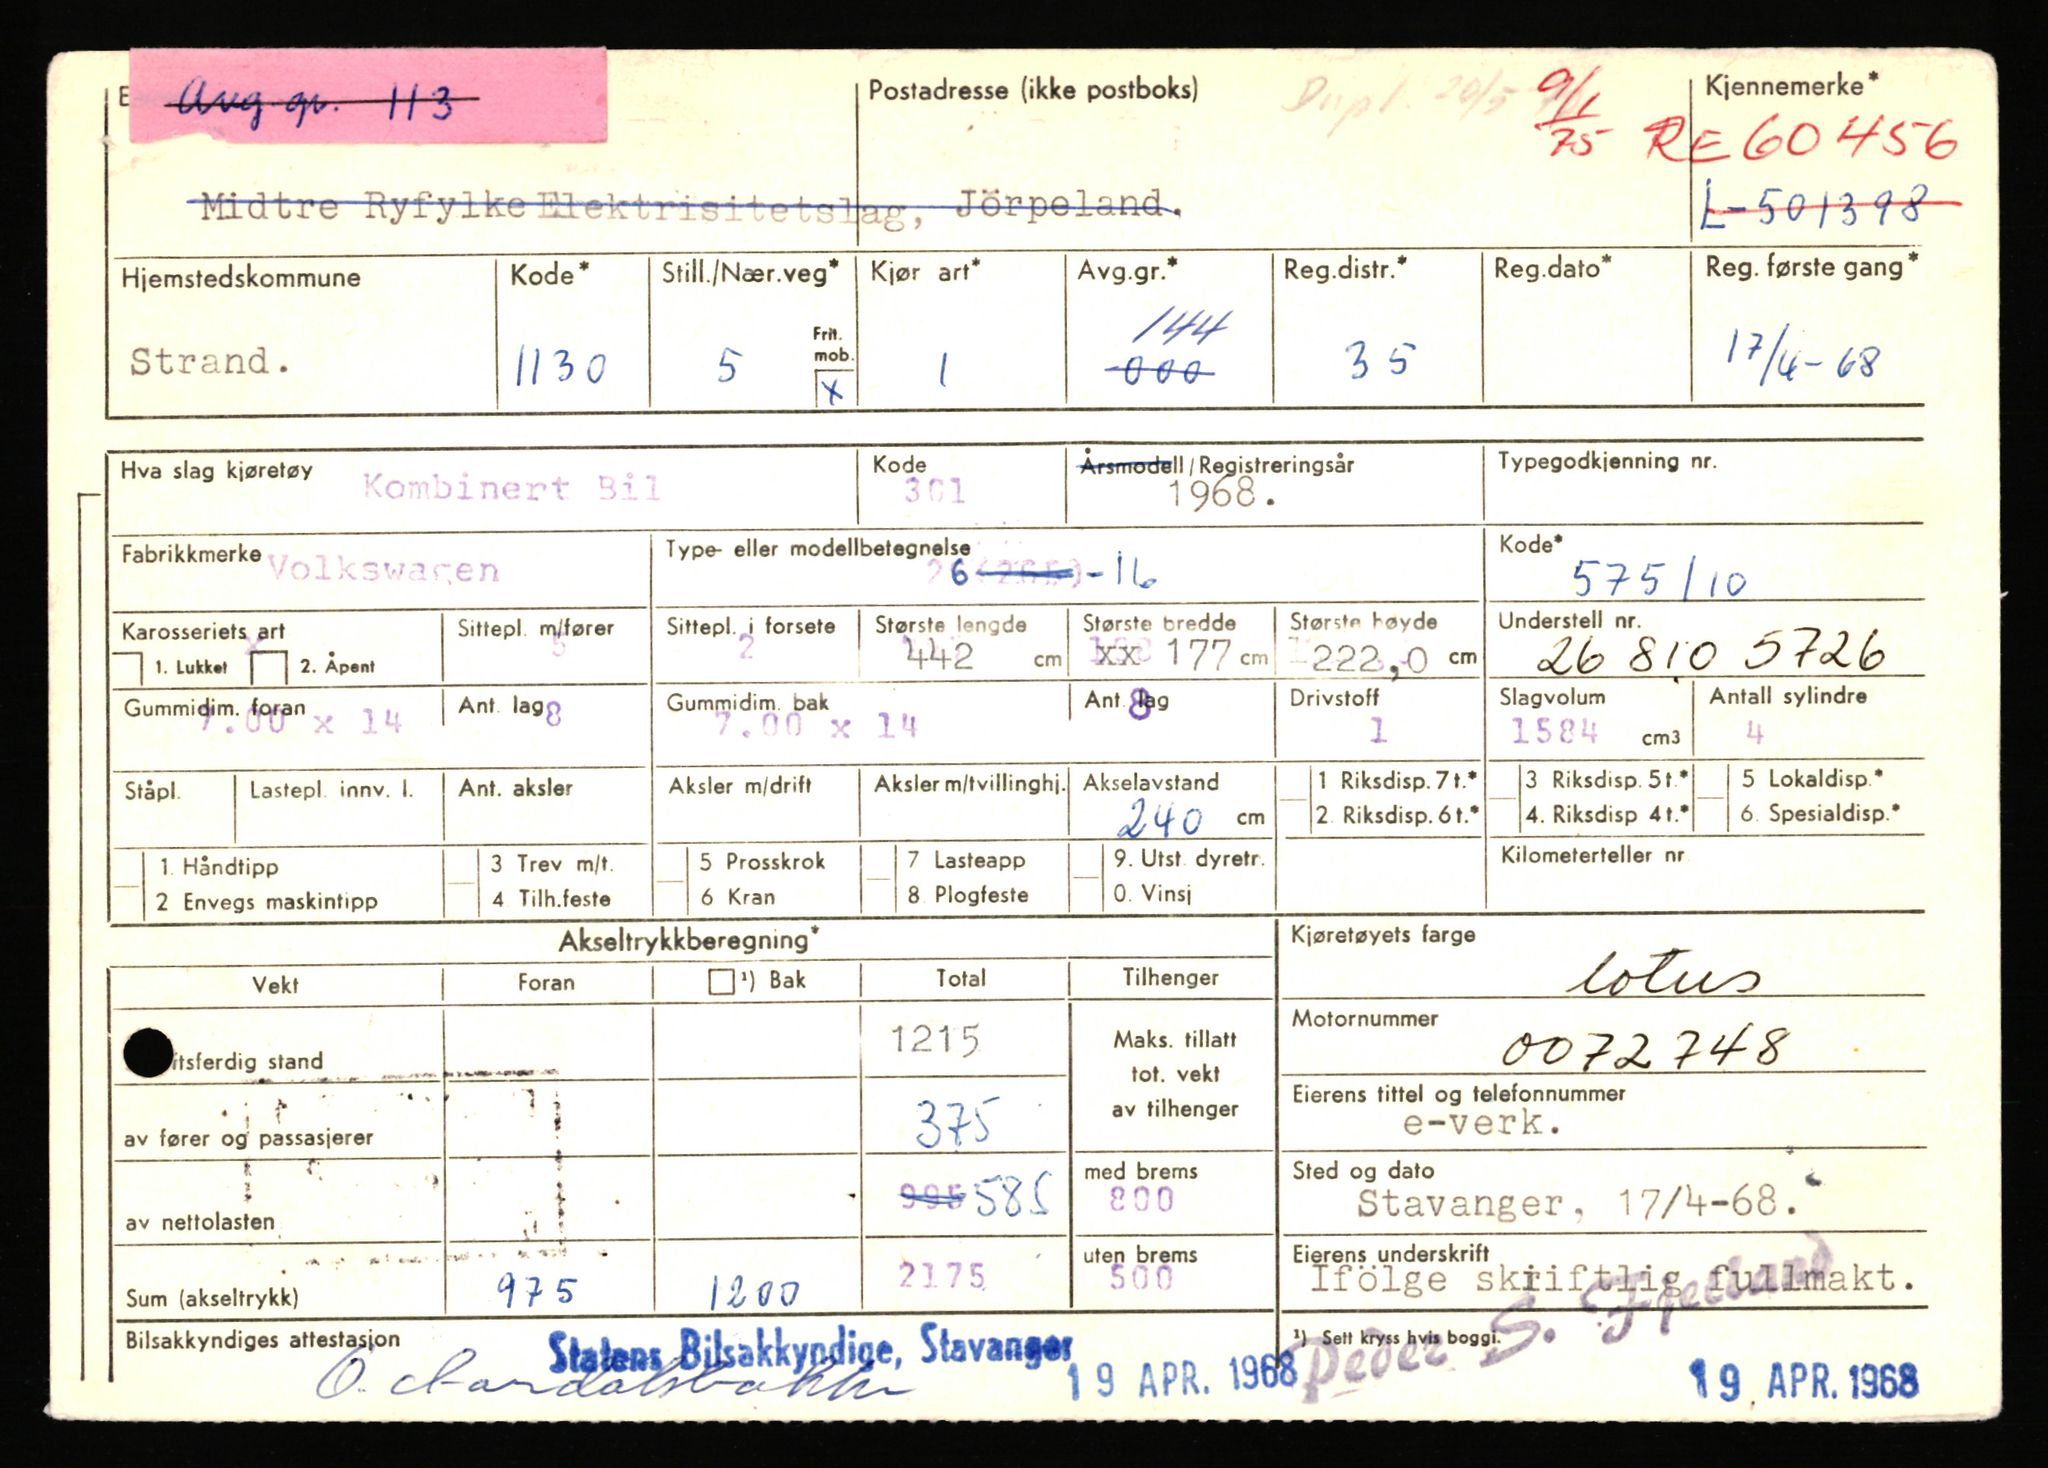 Avg. gr. 113
Postadresse (ikke postboks)
Dupl. 20/5
9/1 75
Kjennemerke*
RE60456
L-501398
Midtre Ryfylke Elektrisitetslag, Jörpeland.
Hjemstedskommune Kode* Still./Nær.veg* Kjør art* Avg.gr.* Reg.distr.* Reg.dato* Reg. første gang*
Frit. mob. 144
Strand. 1130 5 x 1 000 35 17/4-68
Hva slag kjøretøy Kombinert Bil Kode 301 Årsmodell/Registreringsår 1968. Typegodkjenning nr.
Fabrikkmerke Volkswagen Type- eller modellbetegnelse 26 (265) -16 Kode* 575/10
Karosseriets art Sittepl. m/fører Sittepl. i forsete Største lengde Største bredde Største høyde Understell nr.
x 1. Lukket 2. Åpent 5 2 442 cm xx 177 cm 222,0 cm 26 810 5726
Gummidim. foran Ant. lag Gummidim. bak Ant. lag Drivstoff Slagvolum Antall sylindre
7.00 x 14 8 7.00 x 14 8 1 1584 cm3 4
Ståpl. Lastepl. innv. l. Ant. aksler Aksler m/drift Aksler m/tvillinghj. Akselavstand 1 Riksdisp. 7t.* 3 Riksdisp. 5t.* 5 Lokaldisp.*
240 cm 2. Riksdisp. 6t.* 4. Riksdisp 4t.* 6. Spesialdisp.*
1. Håndtipp 3 Trev m/t. 5 Prosskrok 7 Lasteapp 9. Utst. dyretr. Kilometerteller nr
2 Envegs maskintipp 4 Tilh.feste 6 Kran 8 Plogfeste 0. Vinsj
Akseltrykkberegning* Kjøretøyets farge
Vekt Foran ¹) Bak Total Tilhenger lotus
itsferdig stand 1215 Maks. tillatt tot. vekt av tilhenger
Motornummer 0072748
av fører og passasjerer 375
Eierens tittel og telefonnummer
e-verk.
av nettolasten 995 585 med brems 800
Sted og dato
Stavanger, 17/4-68.
Sum (akseltrykk) 975 1200 2175 uten brems 500
Eierens underskrift
Ifölge skriftlig fullmakt.
Bilsakkyndiges attestasjon
Statens Bilsakkyndige, Stavanger
19 APR. 1968
¹) Sett kryss hvis boggi.
Peder S. Fjelland
19 APR. 1968